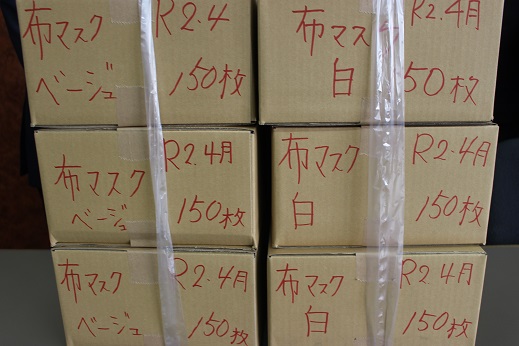 布マスク R2.4
ベージュ 150枚
布マスク R2.4月
白 50枚
布マスク R2.4月
ベージュ 150枚
布マスク R2.4月
白 150枚
布マスク R2.4月
ベージュ 150枚
布マスク R2.4月
白 150枚